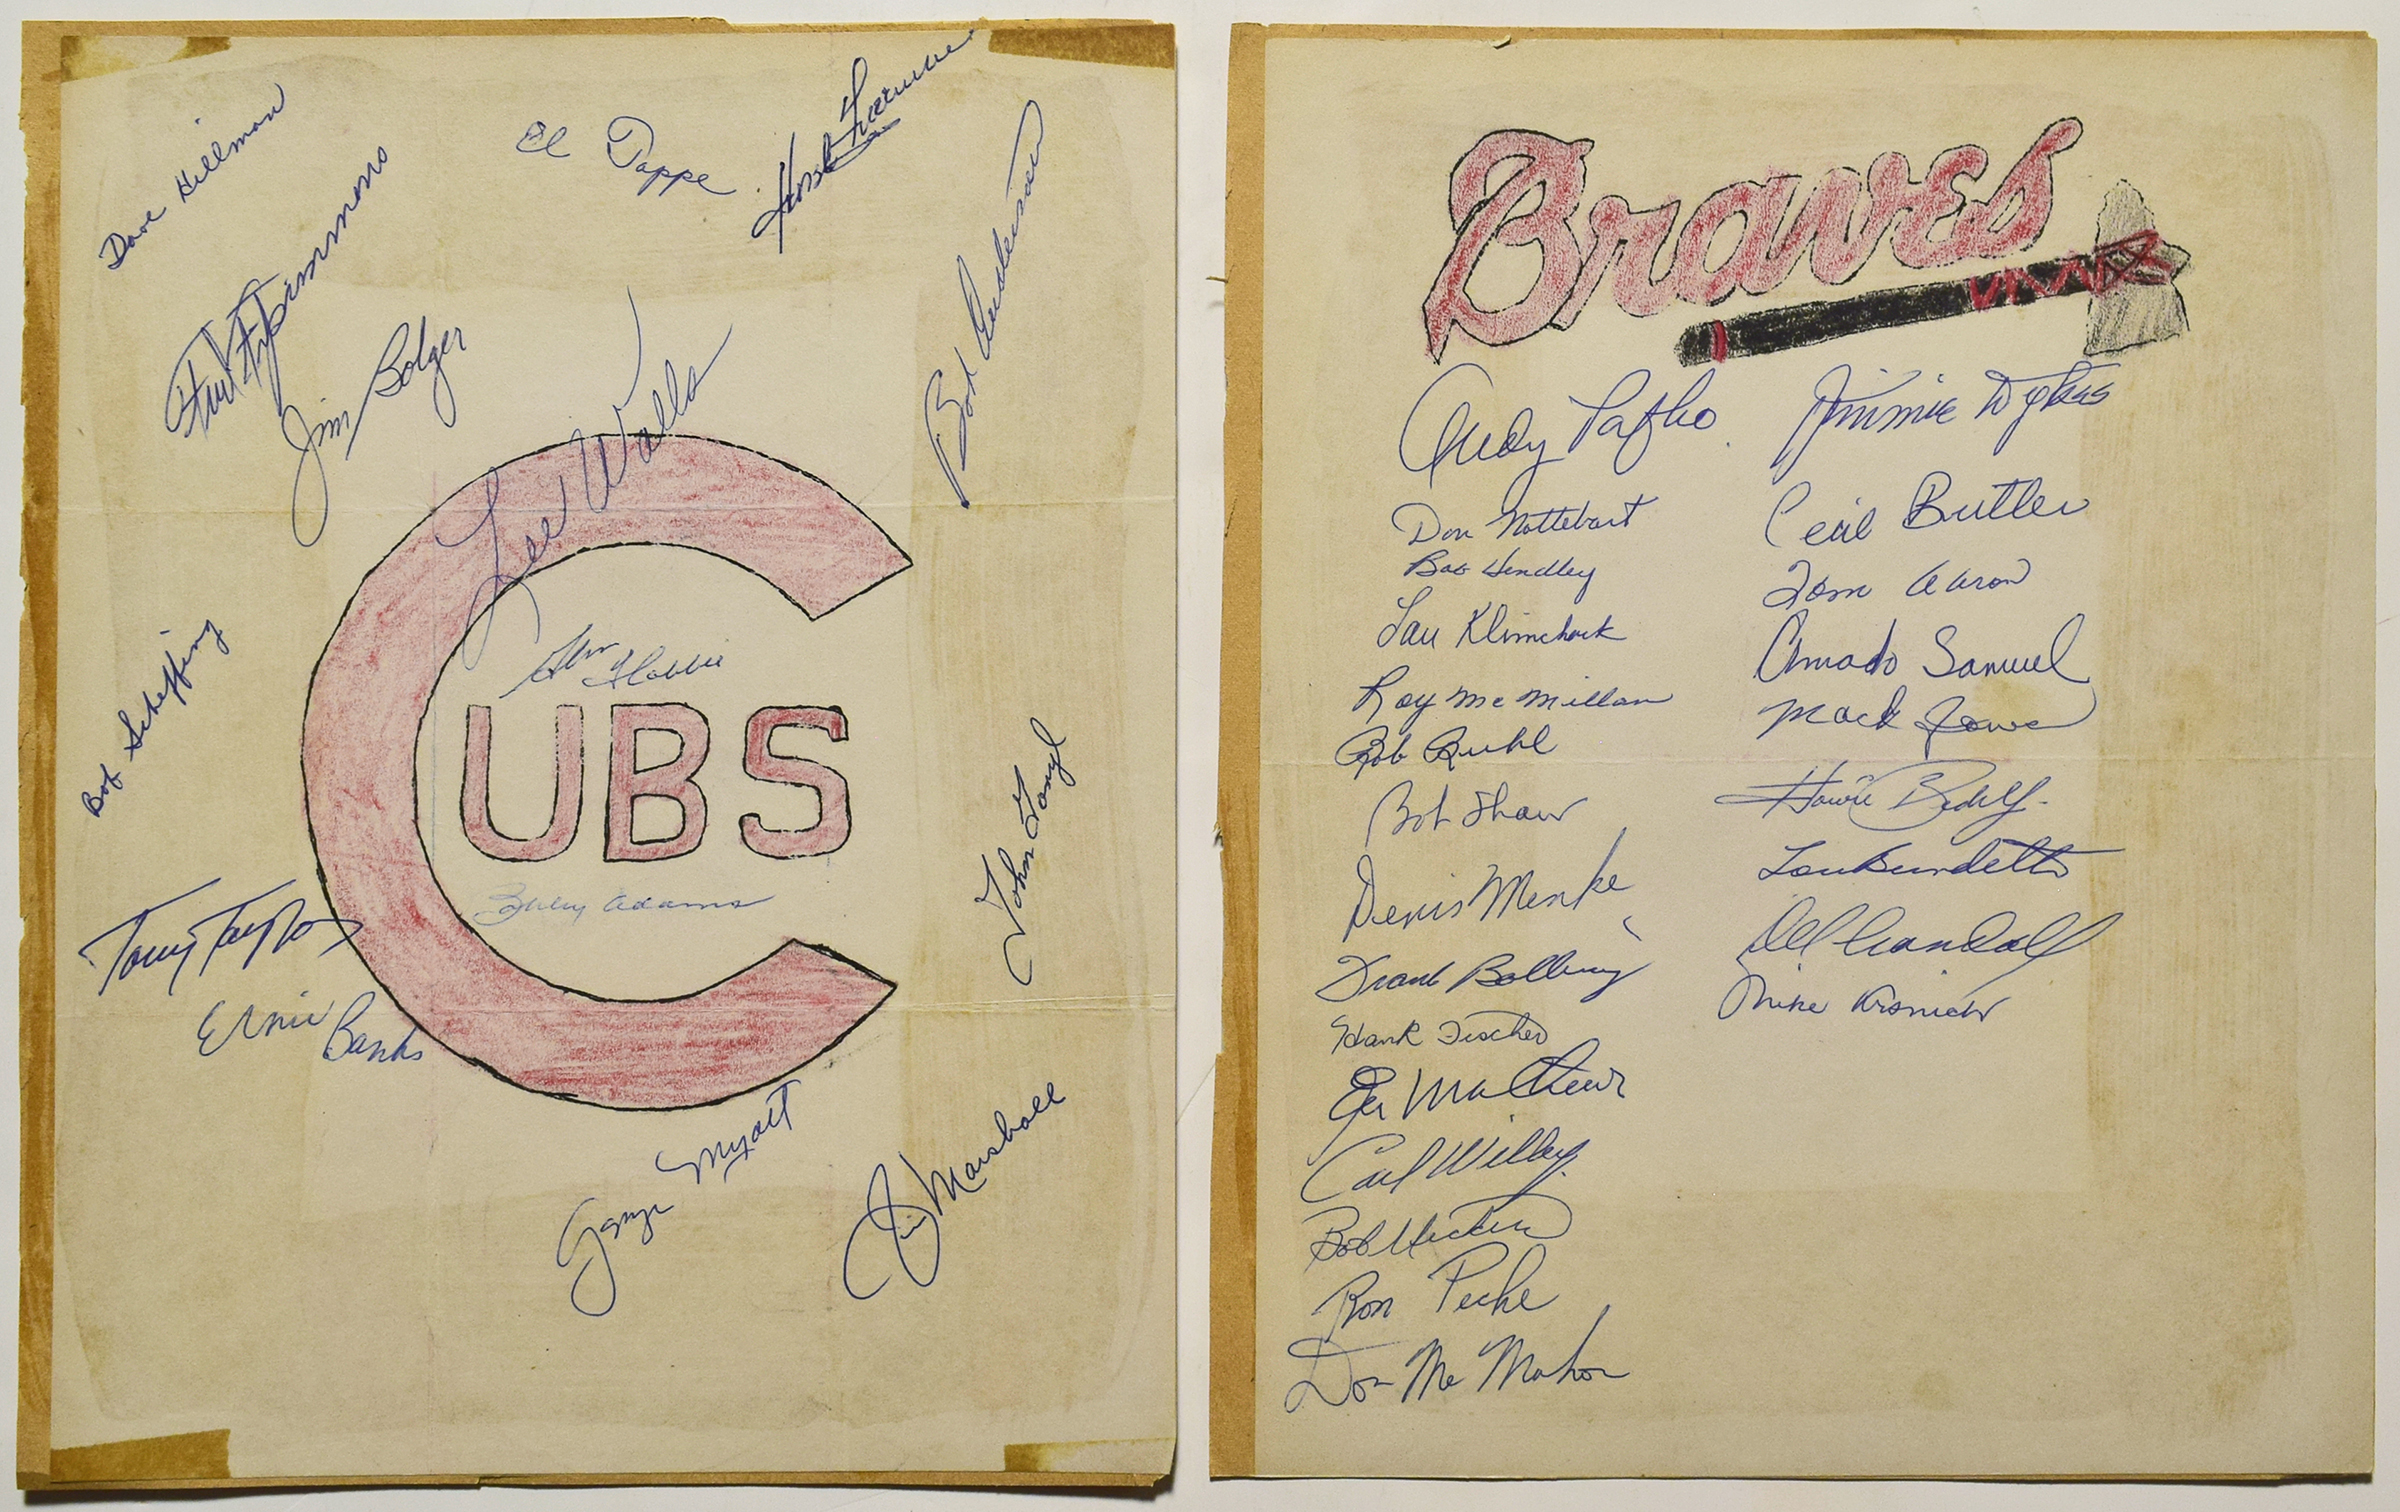 Dave Hillman
El Tappe
Hersh Freeman
Bob Anderson
Fred Fitzsimmons
Jim Bolger
Lee Walls
Glen Hobbie
Bob Scheffing
CUBS
John Goryl
Bobby Adams
Tony Taylor
Ernie Banks
George Myatt
Jim Marshall
Braves
Andy Pafko
Don Nottebart
Bob Hendley
Lou Klimchock
Roy McMillan
Bob Buhl
Bob Shaw
Denis Menke
Frank Bolling
Hank Fischer
Ed Mathews
Carl Willey
Bob Uecker
Ron Piche
Don McMahon
Jimmie Dykes
Cecil Butler
Tom Aaron
Amado Samuel
Mack Jones
Howie Bedell
Lou Burdette
Del Crandall
Mike Krsnich